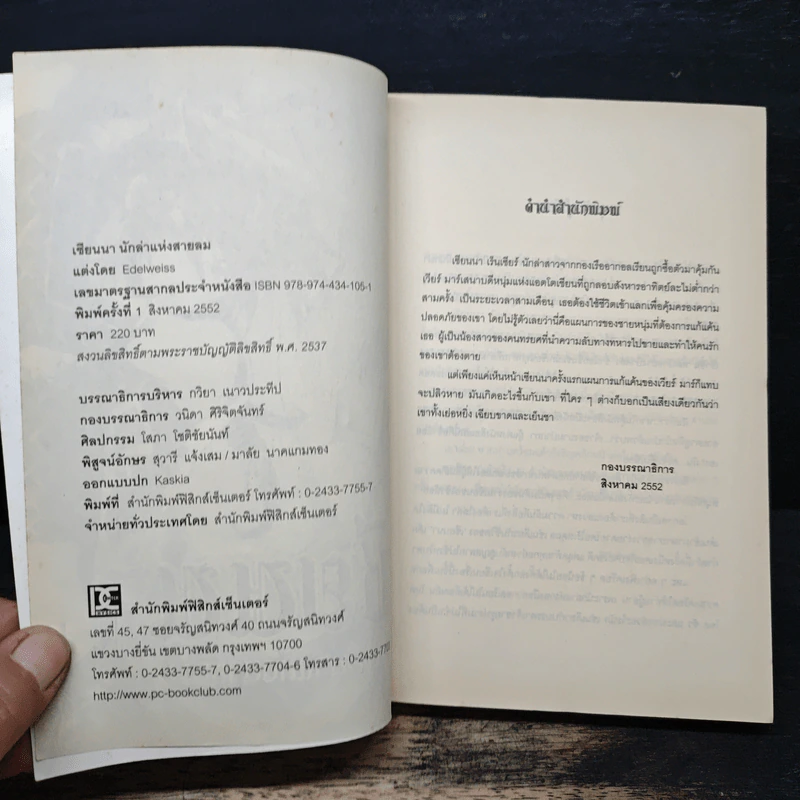 เซียนนา นักล่าแห่งสายลม
แต่งโดย Edelweiss
เลขมาตรฐานสากลประจำหนังสือ ISBN 978-974-434-105-1
พิมพ์ครั้งที่ 1 สิงหาคม 2552
ราคา 220 บาท
สงวนลิขสิทธิ์ตามพระราชบัญญัติลิขสิทธิ์ พ.ศ. 2537
บรรณาธิการบริหาร กวิยา เนาวประทีป
กองบรรณาธิการ วนิดา ศิริจิตจันทร์
ศิลปกรรม โสภา โชติชัยนันท์
พิสูจน์อักษร สุวารี แจ้งเสม / มาลัย นาคแกมทอง
ออกแบบปก Kaskia
พิมพ์ที่ สำนักพิมพ์ฟิสิกส์เซ็นเตอร์ โทรศัพท์ : 0-2433-7755-7
จำหน่ายทั่วประเทศโดย สำนักพิมพ์ฟิสิกส์เซ็นเตอร์
สำนักพิมพ์ฟิสิกส์เซ็นเตอร์
เลขที่ 45, 47 ซอยจรัญสนิทวงศ์ 40 ถนนจรัญสนิทวงศ์
แขวงบางยี่ขัน เขตบางพลัด กรุงเทพฯ 10700
โทรศัพท์ : 0-2433-7755-7, 0-2433-7704-6 โทรสาร : 0-2433-770
http://www.pc-bookclub.com
คำนำสำนักพิมพ์
เซียนนา เร็นเซียร์ นักล่าสาวจากกองเรืออากอลเรียนถูกซื้อตัวมาคุ้มกัน
เวียร์ มาร์เสนาบดีหนุ่มแห่งแอตโตเซียนที่ถูกลอบสังหารอาทิตย์ละไม่ต่ำกว่า
สามครั้ง เป็นระยะเวลาสามเดือน เธอต้องใช้ชีวิตเข้าแลกเพื่อคุ้มครองความ
ปลอดภัยของเขา โดยไม่รู้ตัวเลยว่านี่คือแผนการของชายหนุ่มที่ต้องการแก้แค้น
เธอ ผู้เป็นน้องสาวของคนทรยศที่นำความลับทางทหารไปขายและทำให้คนรัก
ของเขาต้องตาย
แต่เพียงแค่เห็นหน้าเซียนนาครั้งแรกแผนการแก้แค้นของเวียร์ มาร์ก็แทบ
จะปลิวหาย มันเกิดอะไรขึ้นกับเขา ที่ใคร ๆ ต่างก็บอกเป็นเสียงเดียวกันว่า
เขาทั้งเย่อหยิ่ง เฉียบขาดและเย็นชา
กองบรรณาธิการ
สิงหาคม 2552